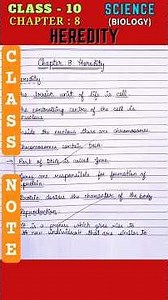 CLASS - 10
CHAPTER : 8
SCIENCE
(BIOLOGY)
HEREDITY
CLASS NOTE
Chapter 8: Heredity
unit of life is cell
controlling centre of the cell is
nucleus
the nucleus there are chromosomes
chromosomes contain DNA
Part of DNA is called gene
Genes are responsible for formation of
protein
Protein decides the characters of the body
Reproduction
It is a process which gives rise to
individuals that are similar to